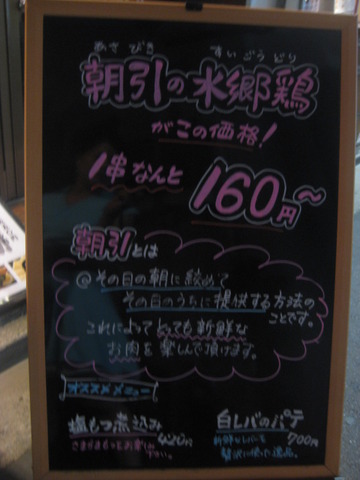 あさ びき すいごうどり
朝引の水郷鶏
がこの価格!
1串なんと 160円~
朝引とは
@その日の朝に絞めて
その日のうちに提供する方法の
ことです。
これによってとても新鮮な
お肉を楽しんで頂けます。
オススメメニュー
塩もつ煮込み
420円
下さい。
白レバのパテ
700円
新鮮なレバーを
贅沢に使った逸品。